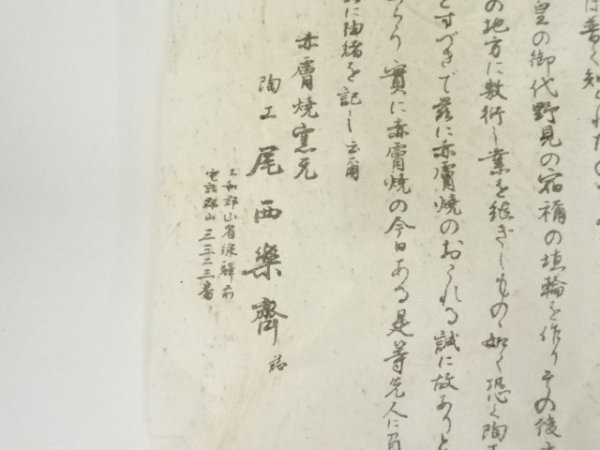 は普く知られたの
皇の御代野見の宿禰の埴輪を作りその後
の地方に敷衍し業を継ぎしもの如く恐く陶工
とすづきで茲に赤膚焼のおこれる誠に故ありと
あらり實に赤膚焼の今日ある是等先人に負
に由緒を記し云爾
赤膚焼窯元
陶工 尾西樂齋 誌
大和郡山省線驛前
電話郡山三五二三番